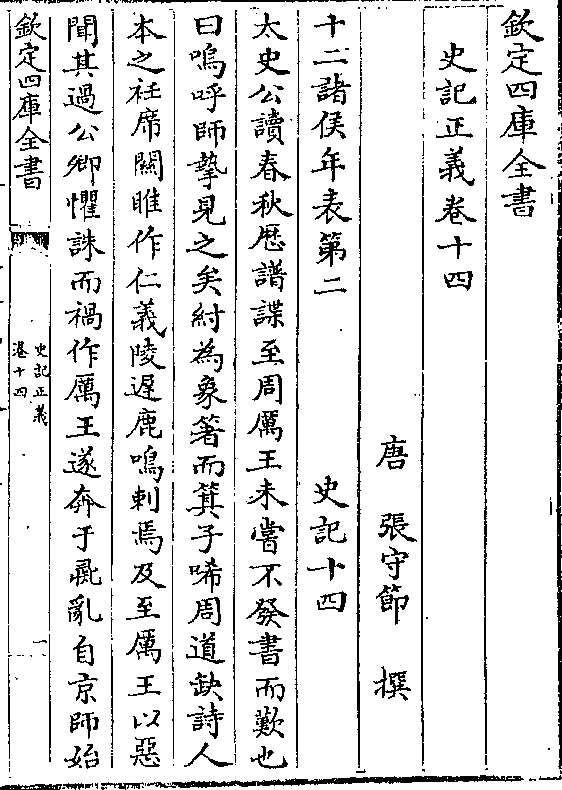 欽定四庫全書
史記正義卷十四
唐 張守節 撰
十二諸侯年表第二 史記十四
太史公讀春秋厯譜諜至周厲王未嘗不發書而歎也
曰嗚呼師摯見之矣紂為象箸而箕子唏周道缺詩人
本之衽席關雎作仁義陵遲鹿鳴刺焉及至厲王以惡
聞其過公卿懼誅而禍作厲王遂奔于彘亂自京師始
欽定四庫全書
史記正義
卷十四
一